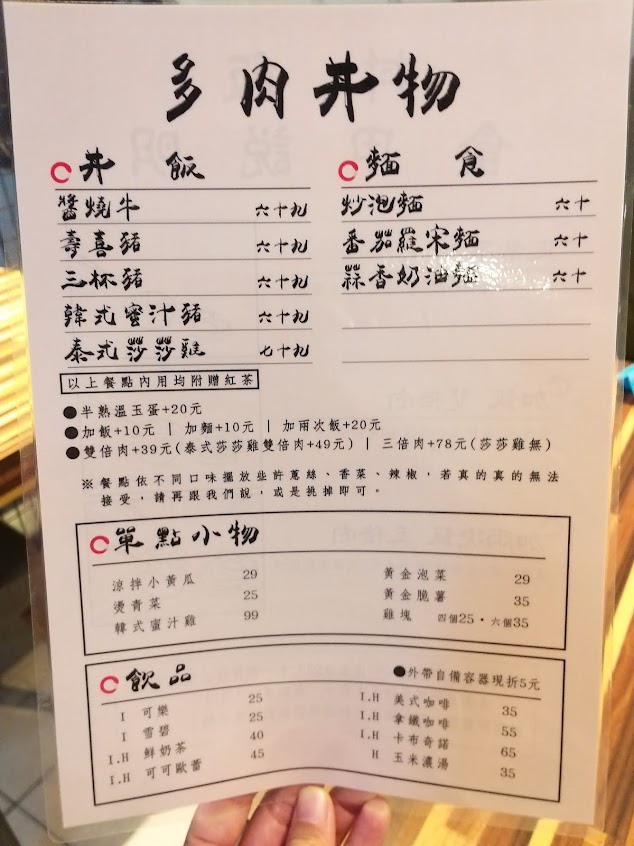 多肉丼物
丼飯
醬燒牛 六十九
壽喜豬 六十九
三杯豬 六十九
韓式蜜汁豬 六十九
泰式莎莎雞 七十九
麵食
炒泡麵 六十
番茄羅宋麵 六十
蒜香奶油麵 六十
以上餐點內用均附贈紅茶
●半熟溫玉蛋+20元
●加飯+10元 | 加麵+10元 | 加兩次飯+20元
●雙倍肉+39元(泰式莎莎雞雙倍肉+49元) | 三倍肉+78元(莎莎雞無)
※餐點依不同口味擺放些許蔥絲、香菜、辣椒，若真的真的無法
接受，請再跟我們說，或是挑掉即可。
單點小物
涼拌小黃瓜 29
燙青菜 25
韓式蜜汁雞 99
黃金泡菜 29
黃金脆薯 35
雞塊 四個25・六個35
飲品
●外帶自備容器現折5元
I 可樂 25
I 雪碧 25
I.H 鮮奶茶 40
I.H 可可歐蕾 45
I.H 美式咖啡 35
I.H 拿鐵咖啡 55
I.H 卡布奇諾 65
H 玉米濃湯 35